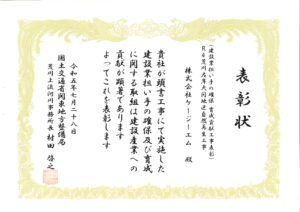 表彰状
（建設業担い手の確保・育成貢献工事表彰）
R4荒川右岸大間地区自然再生工事
株式会社ケージーエム 殿
貴社が頭書工事にて実施した
建設業担い手の確保及び育成
に関する取組は建設産業への
貢献が顕著であります
よってこれを表彰します
令和五年七月二十八日
国土交通省関東地方整備局
荒川上流河川事務所長 村田 啓之